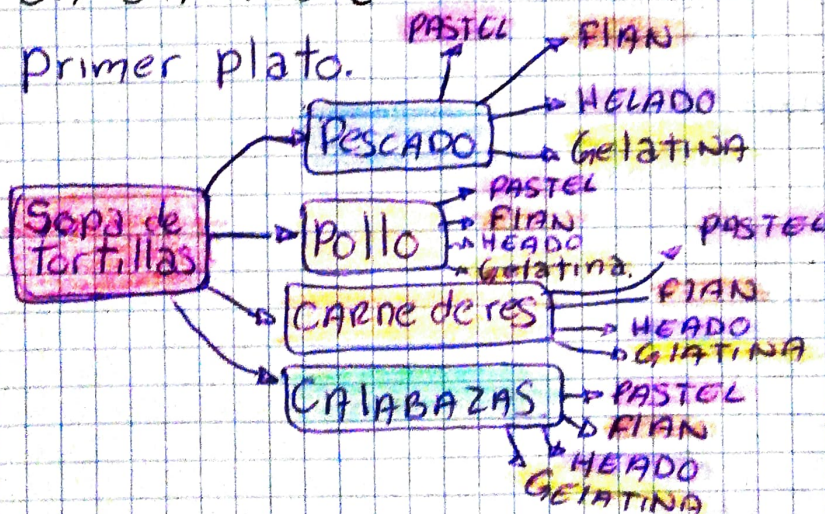 Primer plato.
Sopa de
Tortillas
PESCADO
PASTEL
FlAN
HELADO
GelatiNA
Pollo
PASTEL
FlAN
HEADO
Gelatina.
CARNe de res
PASTEL
FlAN
HEADO
GlATiNA
CAlABAZAS
PASTEL
FlAN
HEADO
GElATiNA